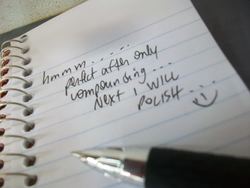 hmmm......
perfect after only
compounding...
Next I WILL
POLISH...